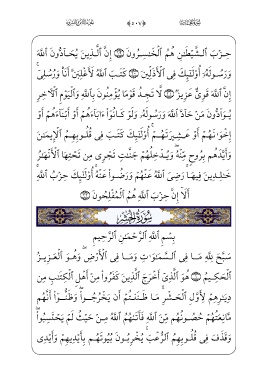 حِزْبَ ٱلشَّيْطَٰنِ هُمُ ٱلْخَٰسِرُونَ ١٩ إِنَّ ٱلَّذِينَ يُحَآدُّونَ ٱللَّهَ
وَرَسُولَهُۥٓ أُو۟لَٰٓئِكَ فِى ٱلْأَذَلِّينَ ٢٠ كَتَبَ ٱللَّهُ لَأَغْلِبَنَّ أَنَا۠ وَرُسُلِىٓ ۚ
إِنَّ ٱللَّهَ قَوِىٌّ عَزِيزٌ ٢١ لَّا تَجِدُ قَوْمًا يُؤْمِنُونَ بِٱللَّهِ وَٱلْيَوْمِ ٱلْءَاخِرِ
يُوَآدُّونَ مَنْ حَآدَّ ٱللَّهَ وَرَسُولَهُۥ وَلَوْ كَانُوٓا۟ ءَابَآءَهُمْ أَوْ أَبْنَآءَهُمْ أَوْ
إِخْوَٰنَهُمْ أَوْ عَشِيرَتَهُمْ ۚ أُو۟لَٰٓئِكَ كَتَبَ فِى قُلُوبِهِمُ ٱلْإِيمَٰنَ
وَأَيَّدَهُم بِرُوحٍ مِّنْهُ ۖ وَيُدْخِلُهُمْ جَنَّٰتٍ تَجْرِى مِن تَحْتِهَا ٱلْأَنْهَٰرُ
خَٰلِدِينَ فِيهَا ۚ رَضِىَ ٱللَّهُ عَنْهُمْ وَرَضُوا۟ عَنْهُ ۚ أُو۟لَٰٓئِكَ حِزْبُ ٱللَّهِ ۚ
أَلَآ إِنَّ حِزْبَ ٱللَّهِ هُمُ ٱلْمُفْلِحُونَ ٢٢
سُورَةُ الحَشْرِ
بِسْمِ ٱللَّهِ ٱلرَّحْمَٰنِ ٱلرَّحِيمِ
سَبَّحَ لِلَّهِ مَا فِى ٱلسَّمَٰوَٰتِ وَمَا فِى ٱلْأَرْضِ ۖ وَهُوَ ٱلْعَزِيزُ
ٱلْحَكِيمُ ١ هُوَ ٱلَّذِىٓ أَخْرَجَ ٱلَّذِينَ كَفَرُوا۟ مِنْ أَهْلِ ٱلْكِتَٰبِ مِن
دِيَٰرِهِمْ لِأَوَّلِ ٱلْحَشْرِ ۚ مَا ظَنَنتُمْ أَن يَخْرُجُوا۟ ۖ وَظَنُّوٓا۟ أَنَّهُم
مَّانِعَتُهُمْ حُصُونُهُم مِّنَ ٱللَّهِ فَأَتَىٰهُمُ ٱللَّهُ مِنْ حَيْثُ لَمْ يَحْتَسِبُوا۟ ۖ
وَقَذَفَ فِى قُلُوبِهِمُ ٱلرُّعْبَ ۚ يُخْرِبُونَ بُيُوتَهُم بِأَيْدِيهِمْ وَأَيْدِى